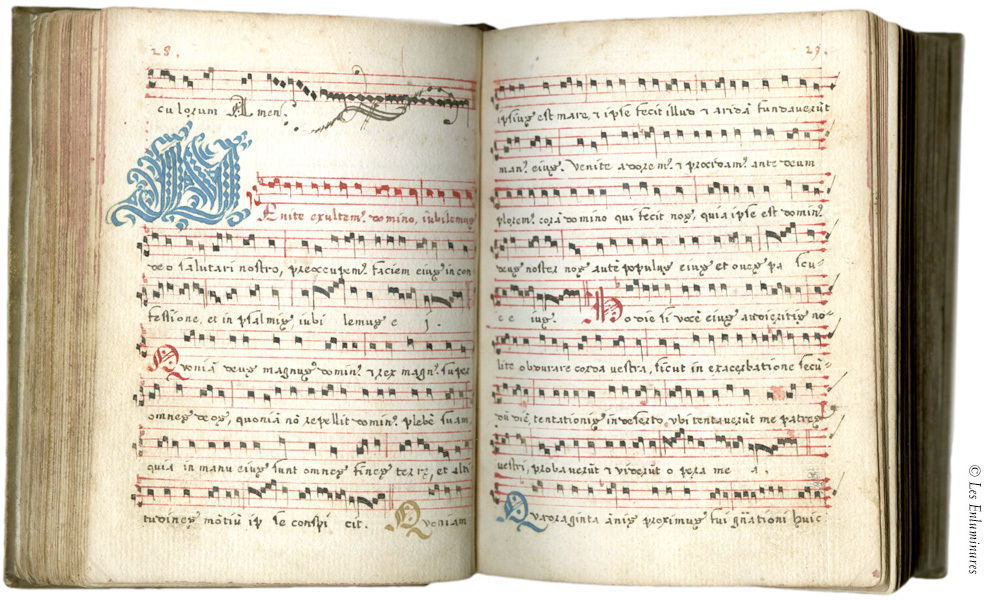 28.
culorum Amen.
VEnite exultem⁹ domino, iubilemus
deo salutari nostro, preoccupem⁹ faciem eius in con
fessione, et in psalmis iubi lemus e i.
Quoniā deus magnus domin⁹ & rex magn⁹ super
omnes deos, quoniā nō repellit domin⁹ plebē suam,
quia in manu eius sunt omnes fines terre, et alti
tudines mōtiū ip se conspi cit. Quoniam
29.
ipsius est mare, & ipse fecit illud & aridā fundaverūt
man⁹ eius. Venite adorem⁹ & procidam⁹ ante deum
plorem⁹ corā domino qui fecit nos, quia ipse est domin⁹
deus noster nos autē populus eius et oves pa scu-
e e ius. Hodie si vocē eius audieritis no-
lite obdurare corda vestra, sicut in exacerbatione secū-
dū diē, tentationis in deserto, ubi tentaverūt me patres
vestri, probaverūt & viderūt o pera me a.
Quadraginta ānis proximus fui gn̄ationi huic
© Les Enluminures